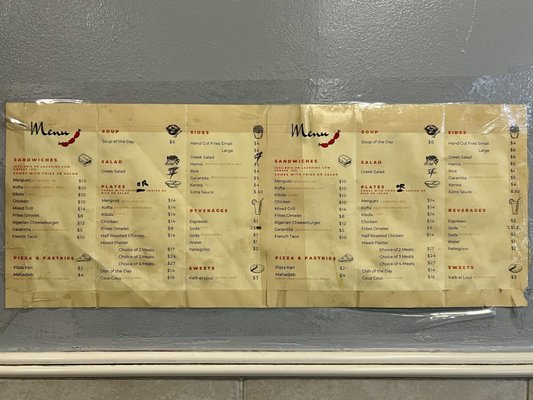 Menu
SANDWICHES
COMES WITH FRIES OR SALAD
Merguez $10
Kofta $10
Kibda $10
Chicken $10
Mixed Grill $14
Frites Omelet $8
Algerian Cheeseburger $12
Garantita $5
French Taco $10
PIZZA & PASTRIES
Pizza Kari
Mahadjeb
SOUP
Soup of the Day $6
SALAD
Greek Salad
PLATES
OR
Merguez $14
Kofta $14
Kibda $14
Chicken $14
Frites Omelet $8
Half Roasted Chicken $14
Mixed Platter
Choice of 2 Meats $17
Choice of 3 Meats $24
Choice of 4 Meats $27
Dish of the Day $14
Cous Cous $16
SIDES
Hand Cut Fries Small
Large
Greek Salad
Hamis
Rice
Garantita
Kersra
Extra Sauce
BEVERAGES
Espresso
Soda
Soda
Water
Pellegrino
SWEETS
Kalb el Louz $3
Menu
SANDWICHES
Merguez $10
Kofta $10
Kibda $10
Chicken $10
Mixed Grill $14
Frites Omelet $8
Algerian Cheeseburger $12
Garantita $5
French Taco $10
PIZZA & PASTRIES
Pizza Kari
Mahadjeb
SOUP
Soup of the Day $6
SALAD
Greek Salad
PLATES
OR
Merguez $14
Kofta $14
Kibda $14
Chicken $14
Frites Omelet $8
Half Roasted Chicken $14
Mixed Platter
Choice of 2 Meats $17
Choice of 3 Meats $24
Choice of 4 Meats $27
Dish of the Day $14
Cous Cous $16
SIDES
Hand Cut Fries Small
Large
Greek Salad
Hamis
Rice
Garantita
Kersra
Extra Sauce
BEVERAGES
Espresso
Soda
Soda
Water
Pellegrino
SWEETS
Kalb el Louz $3